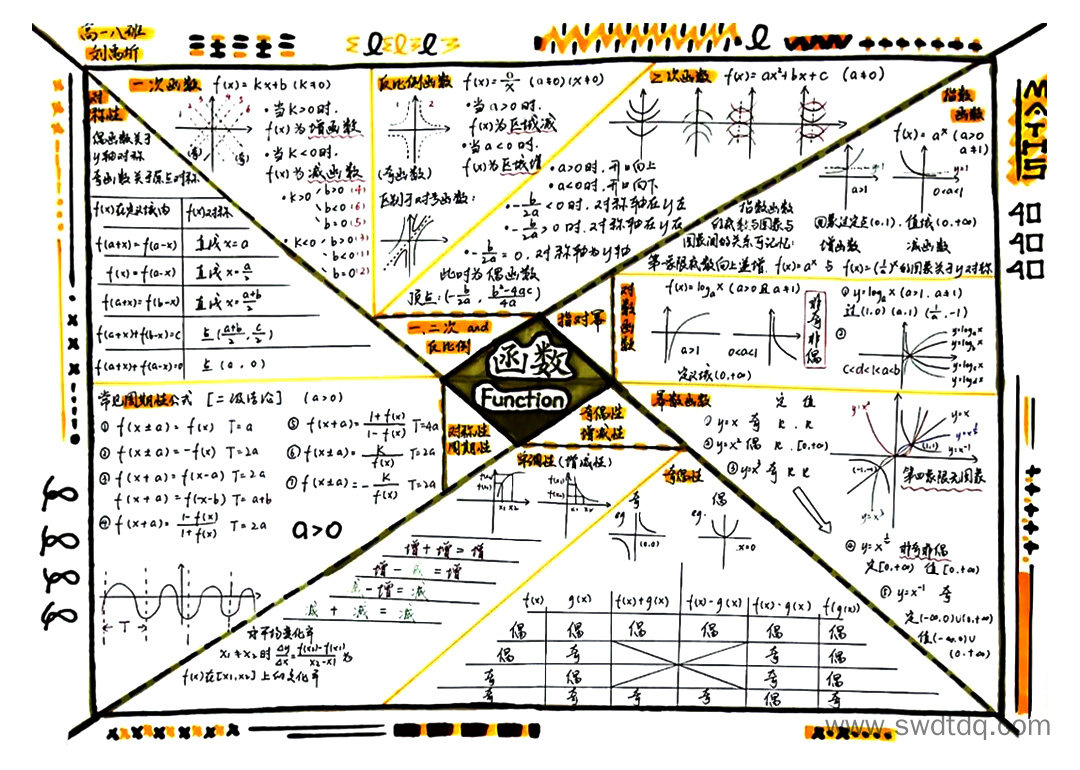 高一八班
MATHS
函数
Function
一、二次 and
反比例
指对幂
对称性
周期性
奇偶性
增减性
一次函数 f(x)=kx+b (k≠0)
·当k>0时.
f(x)为增函数
·当k<0时.
f(x)为减函数
·k>0
b>0(4)
b<0(6)
b=0(5)
·k<0
b>0(3)
b<0(1)
b=0(2)
对称性
偶函数关于
y轴对称
奇函数关于原点对称
f(x)在定义域内
f(x)对称
f(a+x)=f(a-x) 直线x=a
f(x)=f(a-x) 直线x=a/2
f(a+x)=f(b-x) 直线x=(a+b)/2
f(a+x)+f(b-x)=c 点((a+b)/2, c/2)
f(a+x)+f(a-x)=0 点(a,0)
反比例函数 f(x)=a/x (a≠0)(x≠0)
·当a>0时.
f(x)为区域减
·当a<0时.
f(x)为区域增
(奇函数)
区别于对号函数:
二次函数 f(x)=ax²+bx+c (a≠0)
·a>0时,开口向上
·a<0时,开口向下
·-b/2a<0时.对称轴在y左
·-b/2a>0时.对称轴在y右
·-b/2a=0.对称轴为y轴
此时为偶函数
顶点:(-b/2a, b²-4ac/4a)
指数
函数
f(x)=aˣ (a>0
a≠1)
y=1
a>1
0<a<1
图象过定点(0.1).值域(0.+∞)
增函数 减函数
指数函数
的底数与图象与
图象间的关系可记忆:
第一象限底数向上递增. f(x)=aˣ 与 f(x)=(1/a)ˣ的图象关于y对称
对数函数
f(x)=logₐx (a>0且a≠1)
a>1
0<a<1
定义域(0.+∞)
非奇非偶
① y=logₐx (a>1. a≠1)
过(1.0)(a.1)(1/a,-1)
②
C<d<1<a<b
幂数函数
定 值
① y=x 奇 R . R
② y=x² 偶 R . [0.+∞)
③ y=x³ 奇 R R
④ y=x^½ 非奇非偶
定[0.+∞) 值[0.+∞)
⑤ y=x⁻¹ 奇
定(-∞.0)∪(0.+∞)
值(-∞.0)∪
(0.+∞)
y=x²
y=x
y=x^½
y=x⁻¹
y=x³
(1,1)
(-1,-1)
第四象限无图象
常见周期性公式 [二级结论] (a>0)
① f(x±a)=f(x) T=a
② f(x±a)=-f(x) T=2a
③ f(x+a)=f(x-a) T=2a
f(x+a)=f(x-b) T=a+b
④ f(x+a)=(1-f(x))/(1+f(x)) T=2a
⑤ f(x+a)=(1+f(x))/(1-f(x)) T=4a
⑥ f(x±a)=K/f(x) T=2a
⑦ f(x±a)=-K/f(x) T=2a
a>0
T
单调性(增减性)
x1 x2
增+增=增
增-减=增
减-增=减
减+减=减
x₁≠x₂时 Δy/Δx=(f(x₂)-f(x₁))/(x₂-x₁)为
f(x)在[x1,x2]上的变化率
奇偶性
奇
偶
eg
(0.0)
eg.
x=0
f(x) g(x) f(x)+g(x) f(x)-g(x) f(x)·g(x) f(g(x))
偶 偶 偶 偶 偶 偶
偶 奇 奇 偶
奇 偶 奇 偶
奇 奇 奇 奇 偶 奇
www.swdtdq.com